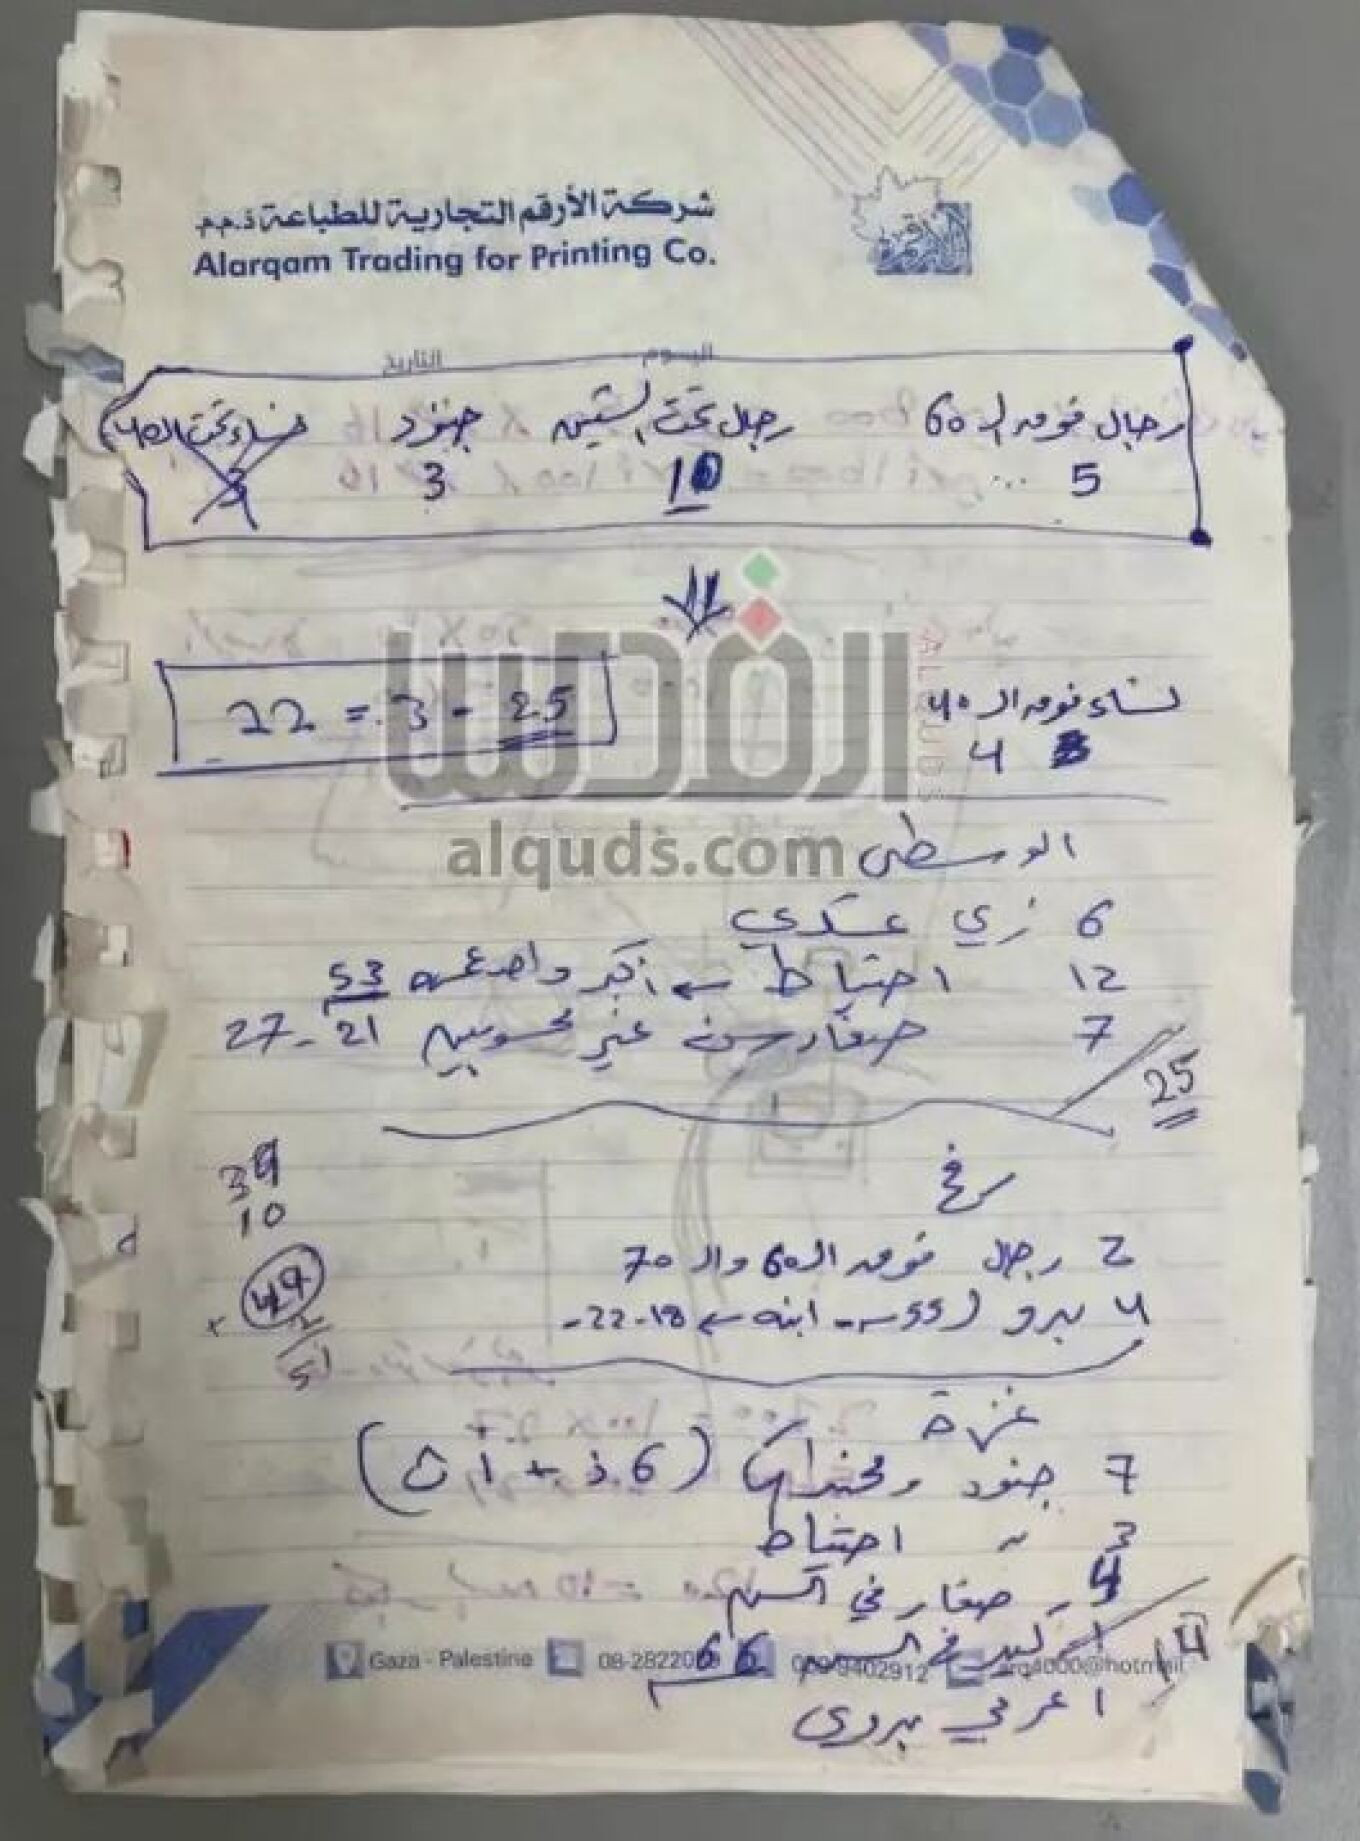 شركة الأرقم التجارية للطباعة ذ.م.م
Alarqam Trading for Printing Co.
اليوم التاريخ
رجال فوق الـ 60 رجال تحت الستين جنود نساء تحت الـ 40
5 ... 10 3 3
القدس
ALQUDS
alquds.com
نساء فوق الـ 40
4
25 - 3 = 22
الوسطى
6 زي عسكري
12 احتياط ← أكبر واحد عمره 53
7 صغار سن غير محسوبين 21 - 27
25
39
10
49
51
رفح
2 رجال فوق الـ 60 والـ 70
4 بدو (55 سـ - ابنه ← 18-22-
غزة
7 جنود ومجندات (6 ذ + 1 ى)
3 " احتياط
4 صغار في السن
1 كبير في السن 66
14
1 عربي بدوي
Gaza - Palestine 08-28220 9402912 arq4000@hotmail